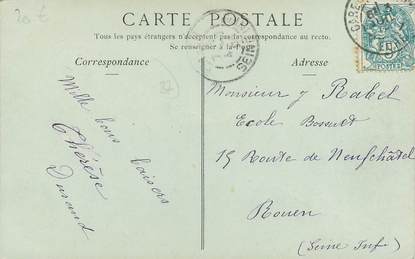 20 €
CARTE POSTALE
Tous les pays étrangers n'acceptent pas la correspondance au recto.
Se renseigner à la
Correspondance
Adresse
37
Mille bons baisers
Thérèse
Durand
Monsieur J Rabel
Ecole Bossuet
15 Route de Neufchâtel
Rouen
(Seine Infre)
GARE